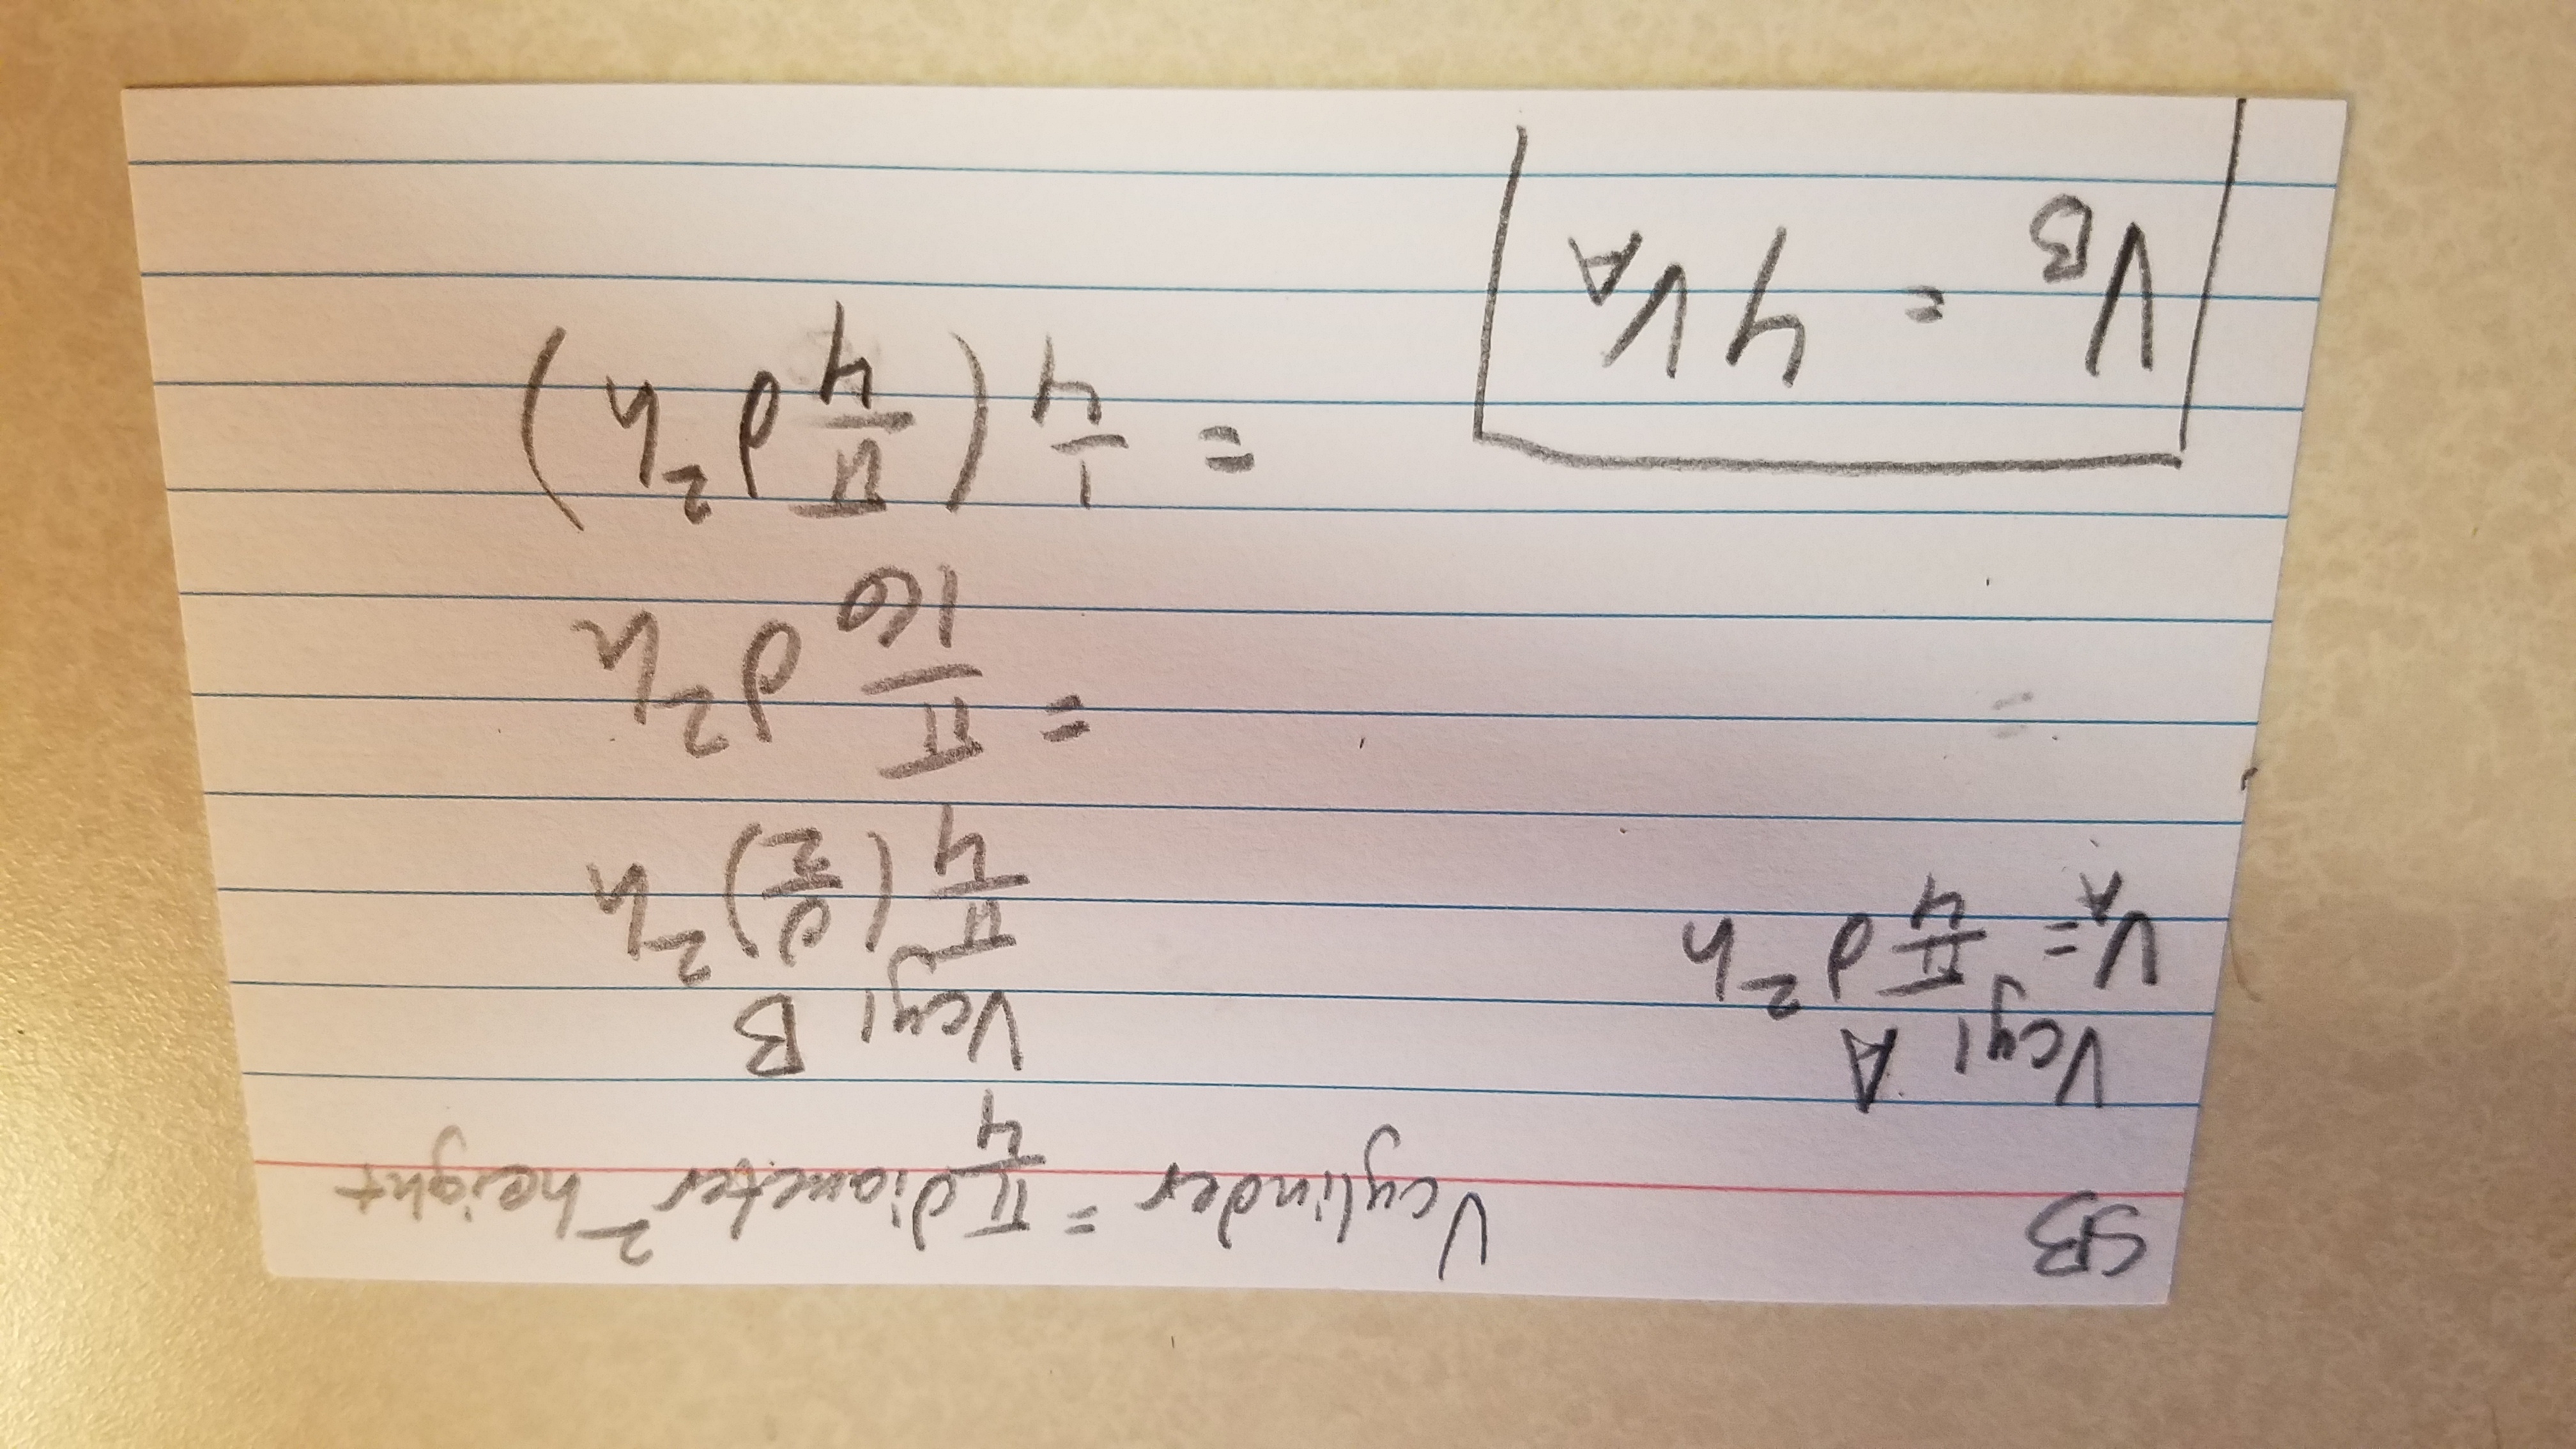 5B V cylinder = π/4 diameter² height
Vcyl A Vcyl B
V_A = π/4 d²h π/4 (d/2)²h
= = π/16 d²h
= 1/4 (π/4 d²h)
V_B = 4V_A